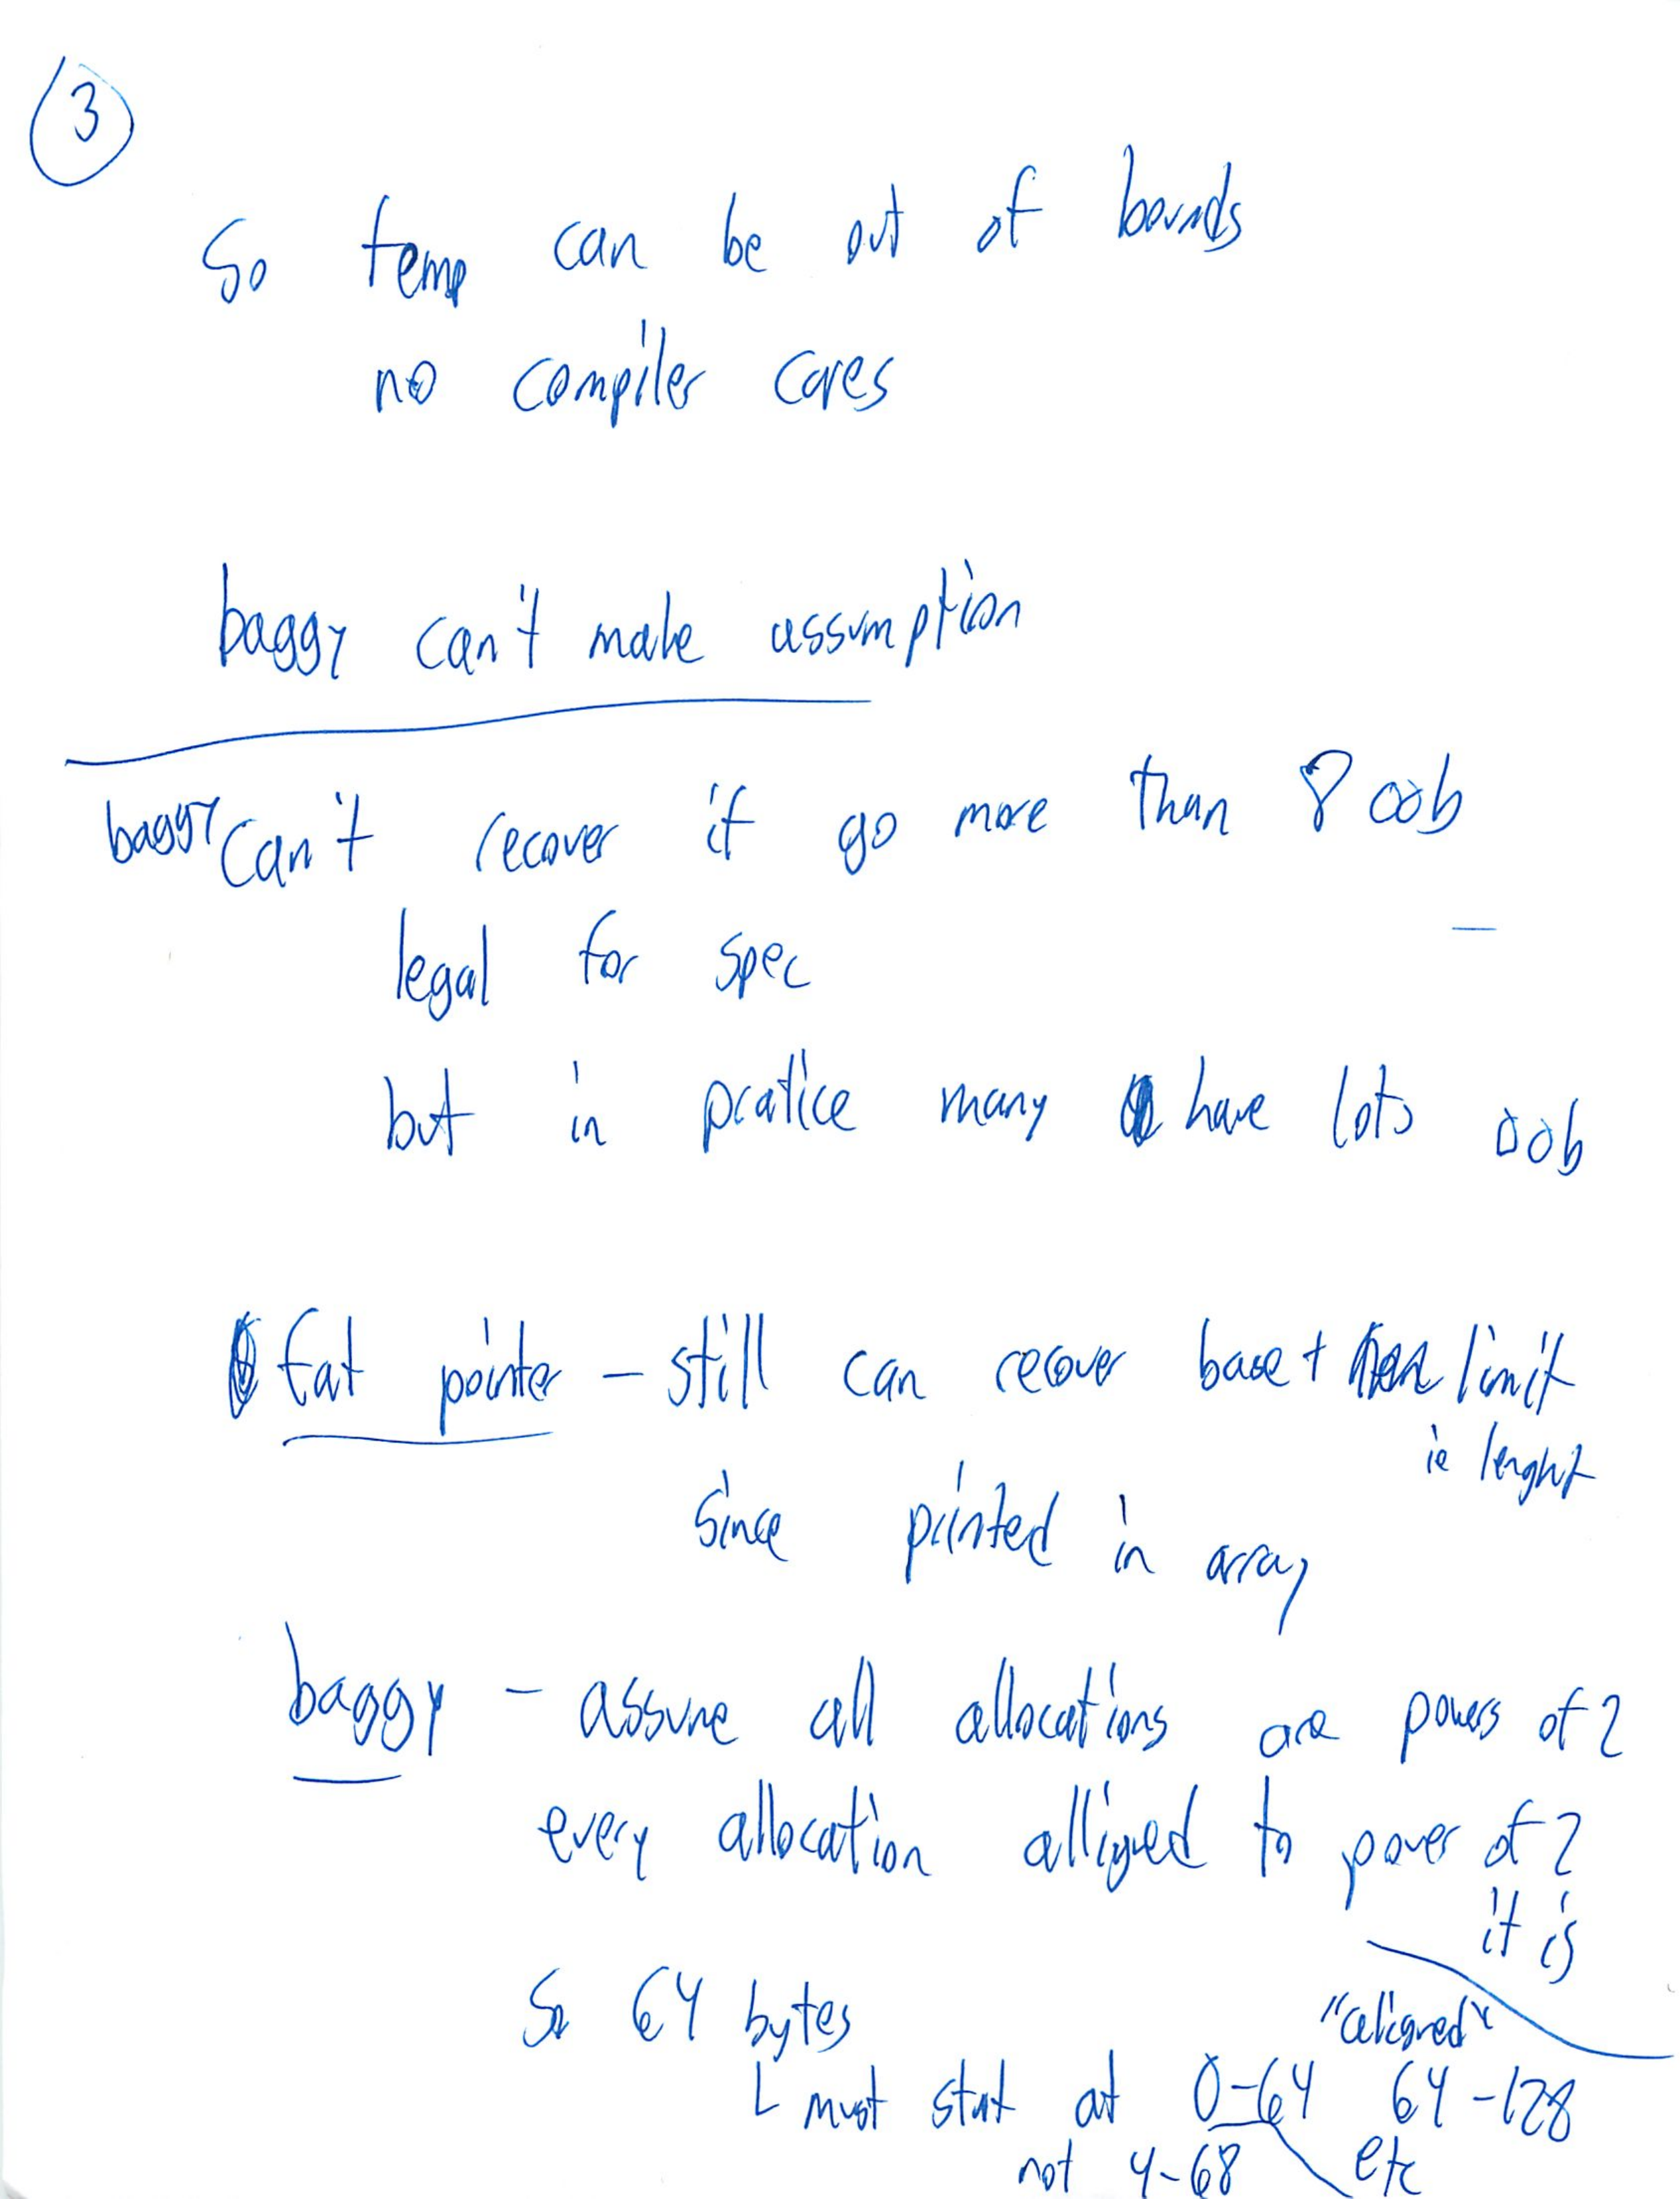 3
So temp can be out of bounds
no compiler cares
baggy can't make assumption
baggy can't recover if go more than 8 oob
legal for spec
but in pratice many have lots oob
fat pointer - still can recover base + limit
ie lenght
Since printed in array
baggy - assume all allocations are powers of 2
every allocation alligned to power of 2
it is
So 64 bytes
"aligned"
must start at 0-64 64-128
not 4-68 etc